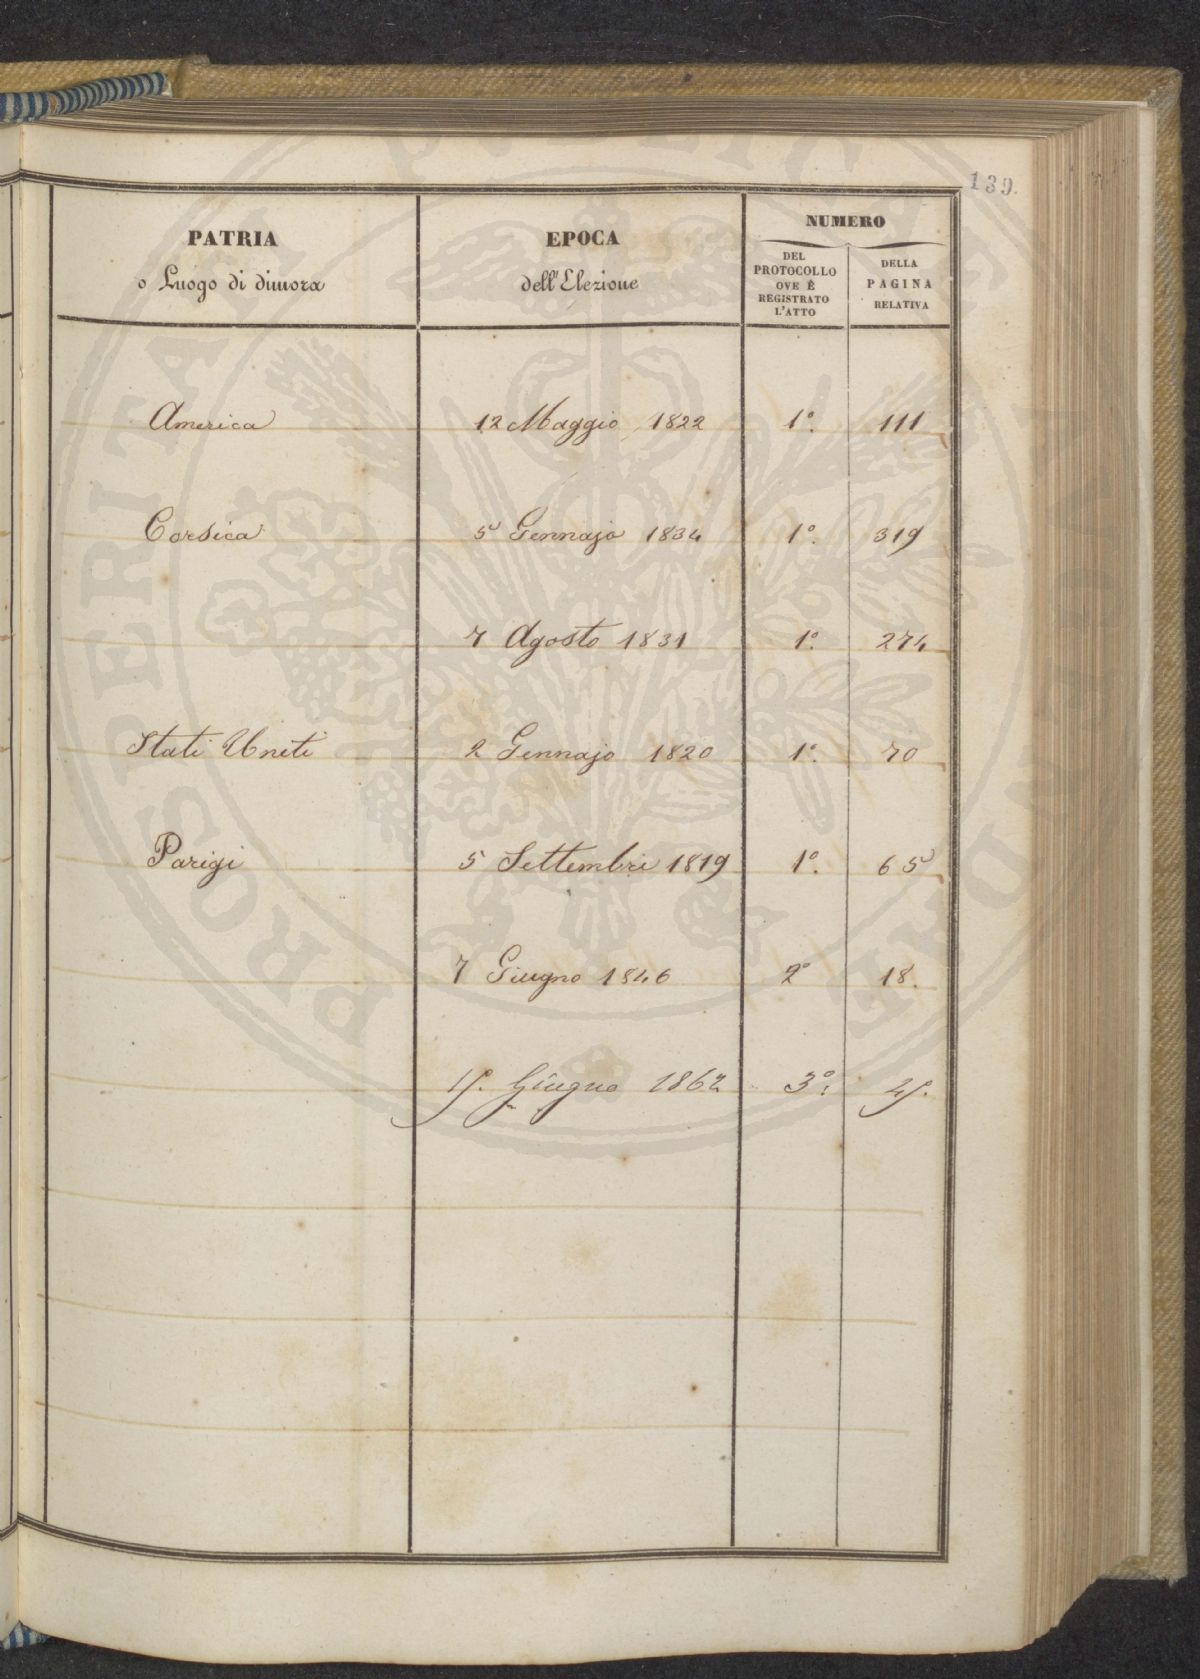 139.
PATRIA
o Luogo di dimora
EPOCA
dell'Elezione
NUMERO
DEL
PROTOCOLLO
OVE È
REGISTRATO
L'ATTO
DELLA
PAGINA
RELATIVA
America 12 Maggio 1822 1º. 111
Corsica 5 Gennajo 1834 1º. 319
7 Agosto 1831 1º. 274
Stati Uniti 2 Gennajo 1820 1º. 70
Parigi 5 Settembre 1819 1º. 65
7 Giugno 1846 2º 18.
15. Giugno 1862 3º. 45.
PROSPERITATI PUBLICAE